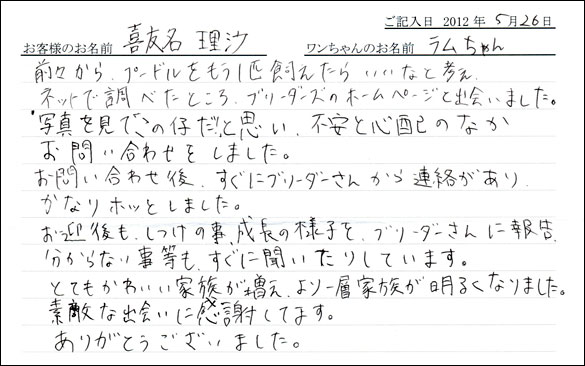 ご記入日 2012年 5月26日
お客様のお名前 喜友名 理沙 ワンちゃんのお名前 ラムちゃん
前々から、プードルをもう1匹飼えたらいいなと考え、
ネットで調べたところ、ブリーダーズのホームページと出会いました。
写真を見て"この仔だ"と思い、不安と心配のなか
お問い合わせをしました。
お問い合わせ後、すぐにブリーダーさんから連絡があり、
かなりホッとしました。
お迎後も、しつけの事、成長の様子を、ブリーダーさんに報告、
分からない事等も、すぐに聞いたりしています。
とてもかわいい家族が増え、より一層家族が明るくなりました。
素敵な出会いに感謝してます。
ありがとうございました。